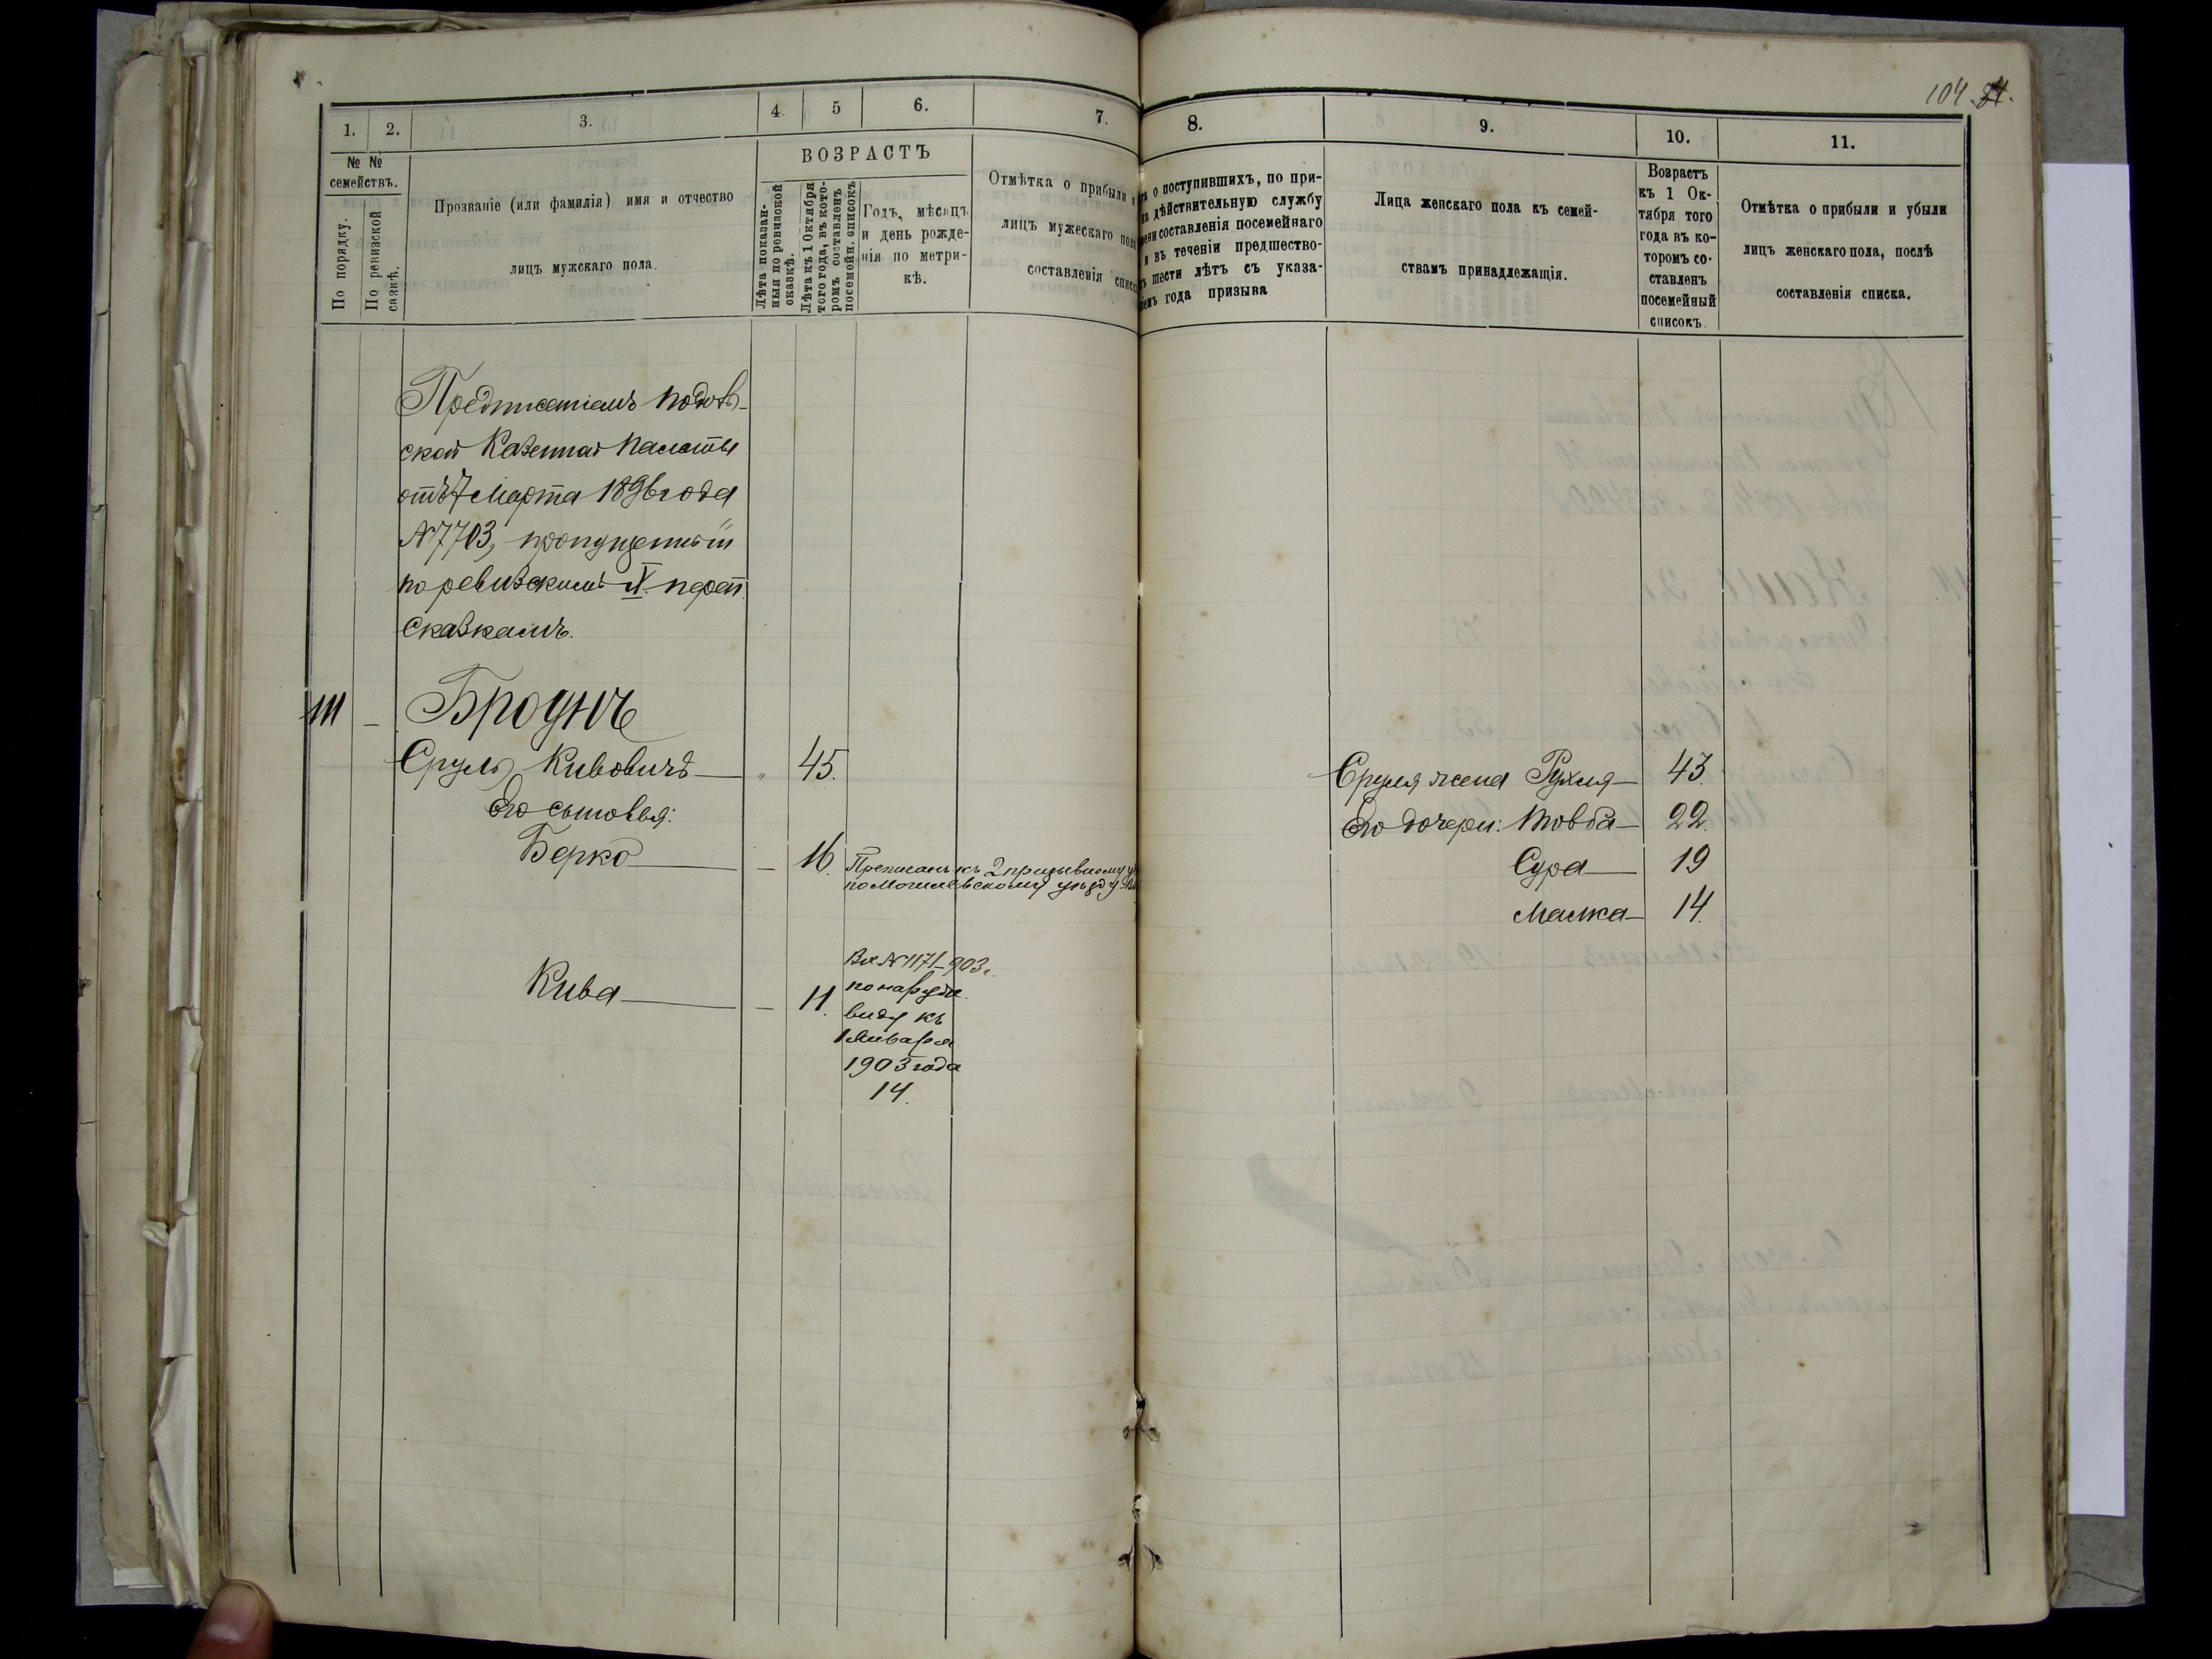 104 84.
1. 2. 3. 4. 5 6. 7.
№ № семействъ.
По порядку.
По ревизской сказкѣ.
Прозваніе (или фамилія) имя и отчество
лицъ мужскаго пола.
ВОЗРАСТЪ
Лѣта показан-
ныя по ревизской
сказкѣ.
Лѣта къ 1 Октября
того года, въ кото-
ромъ составленъ
посемейн. списокъ
Годъ, мѣсяцъ
и день рожде-
нія по метри-
кѣ.
Отмѣтка о прибыли
лицъ мужескаго пола
составленія
8. 9. 10. 11.
о поступившихъ, по при-
дѣйствительную службу
составленія посемейнаго
и въ теченіи предшество-
шести лѣтъ съ указа-
года призыва
Лица женскаго пола къ семей-
ствамъ принадлежащія.
Возрастъ
къ 1 Ок-
тября того
года въ ко-
торомъ со-
ставленъ
посемейный
списокъ.
Отмѣтка о прибыли и убыли
лицъ женскаго пола, послѣ
составленія списка.
Предписаніемъ Подоль-
ской Казенной Палаты
отъ 7 Марта 1896 года
№ 7703, пропущенный
по ревизскимъ X пере
сказкамъ.
111 — Броунъ
Сруль Кивовичъ — " 45.
Его сыновья:
Берко — — 16. Приписанъ къ 2 призывному
по Могилевскому уѣзду
Кива — — 11.
Вх № 1171–903 г.
по наруж.
виду къ
1 Января
1903 года
14.
Сруля жена Рухля — 43.
Его дочери: Товба — 22.
Сура — 19
Малка — 14.